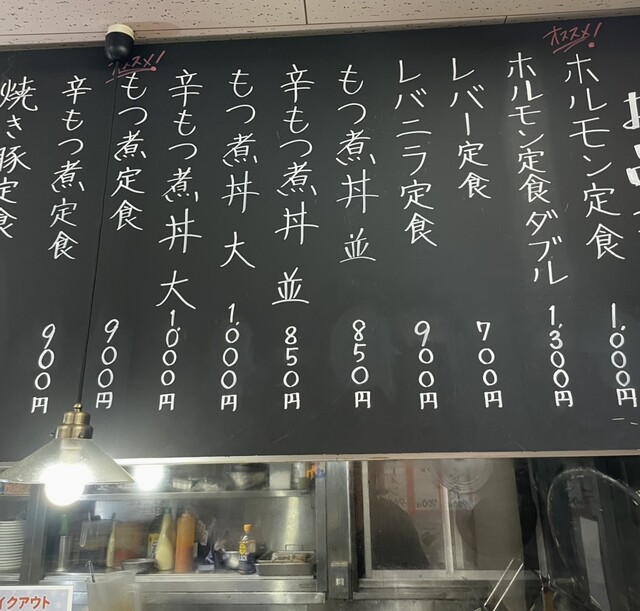 オススメ!
ホルモン定食 1,000円
ホルモン定食ダブル 1,300円
レバー定食 700円
レバニラ定食 900円
もつ煮丼 並 850円
辛もつ煮丼 並 850円
もつ煮丼 大 1,000円
辛もつ煮丼 大 1,000円
オススメ!
もつ煮定食 900円
辛もつ煮定食 900円
焼き豚定食
イクアウト